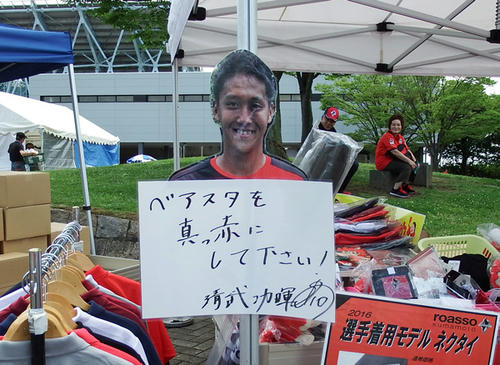 ベアスタを
真っ赤に
して下さい！
清武功暉
2016
roasso
kumamoto
選手着用モデル ネクタイ